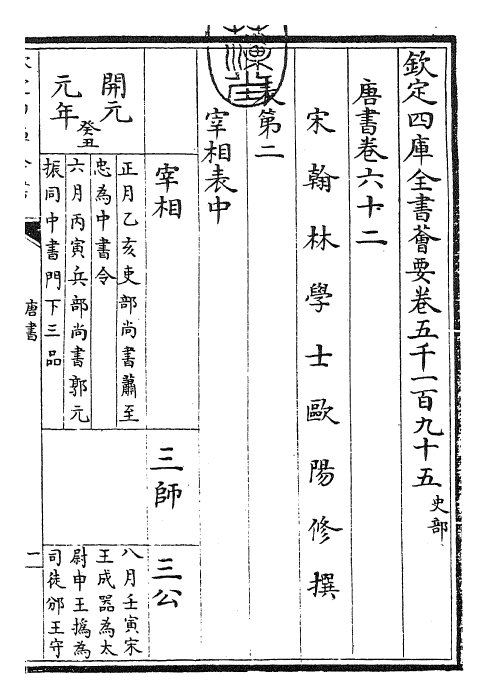 欽定四庫全書薈要卷五千一百九十五史部
唐書卷六十二
宋翰林學士歐陽修撰
表第二
宰相表中
宰相
三師
三公
開元
元年癸丑
正月乙亥吏部尚書蕭至
忠為中書令
六月丙寅兵部尚書郭元
振同中書門下三品
八月壬寅宋
王成器為太
尉申王撝為
司徒邠王守
唐書
一